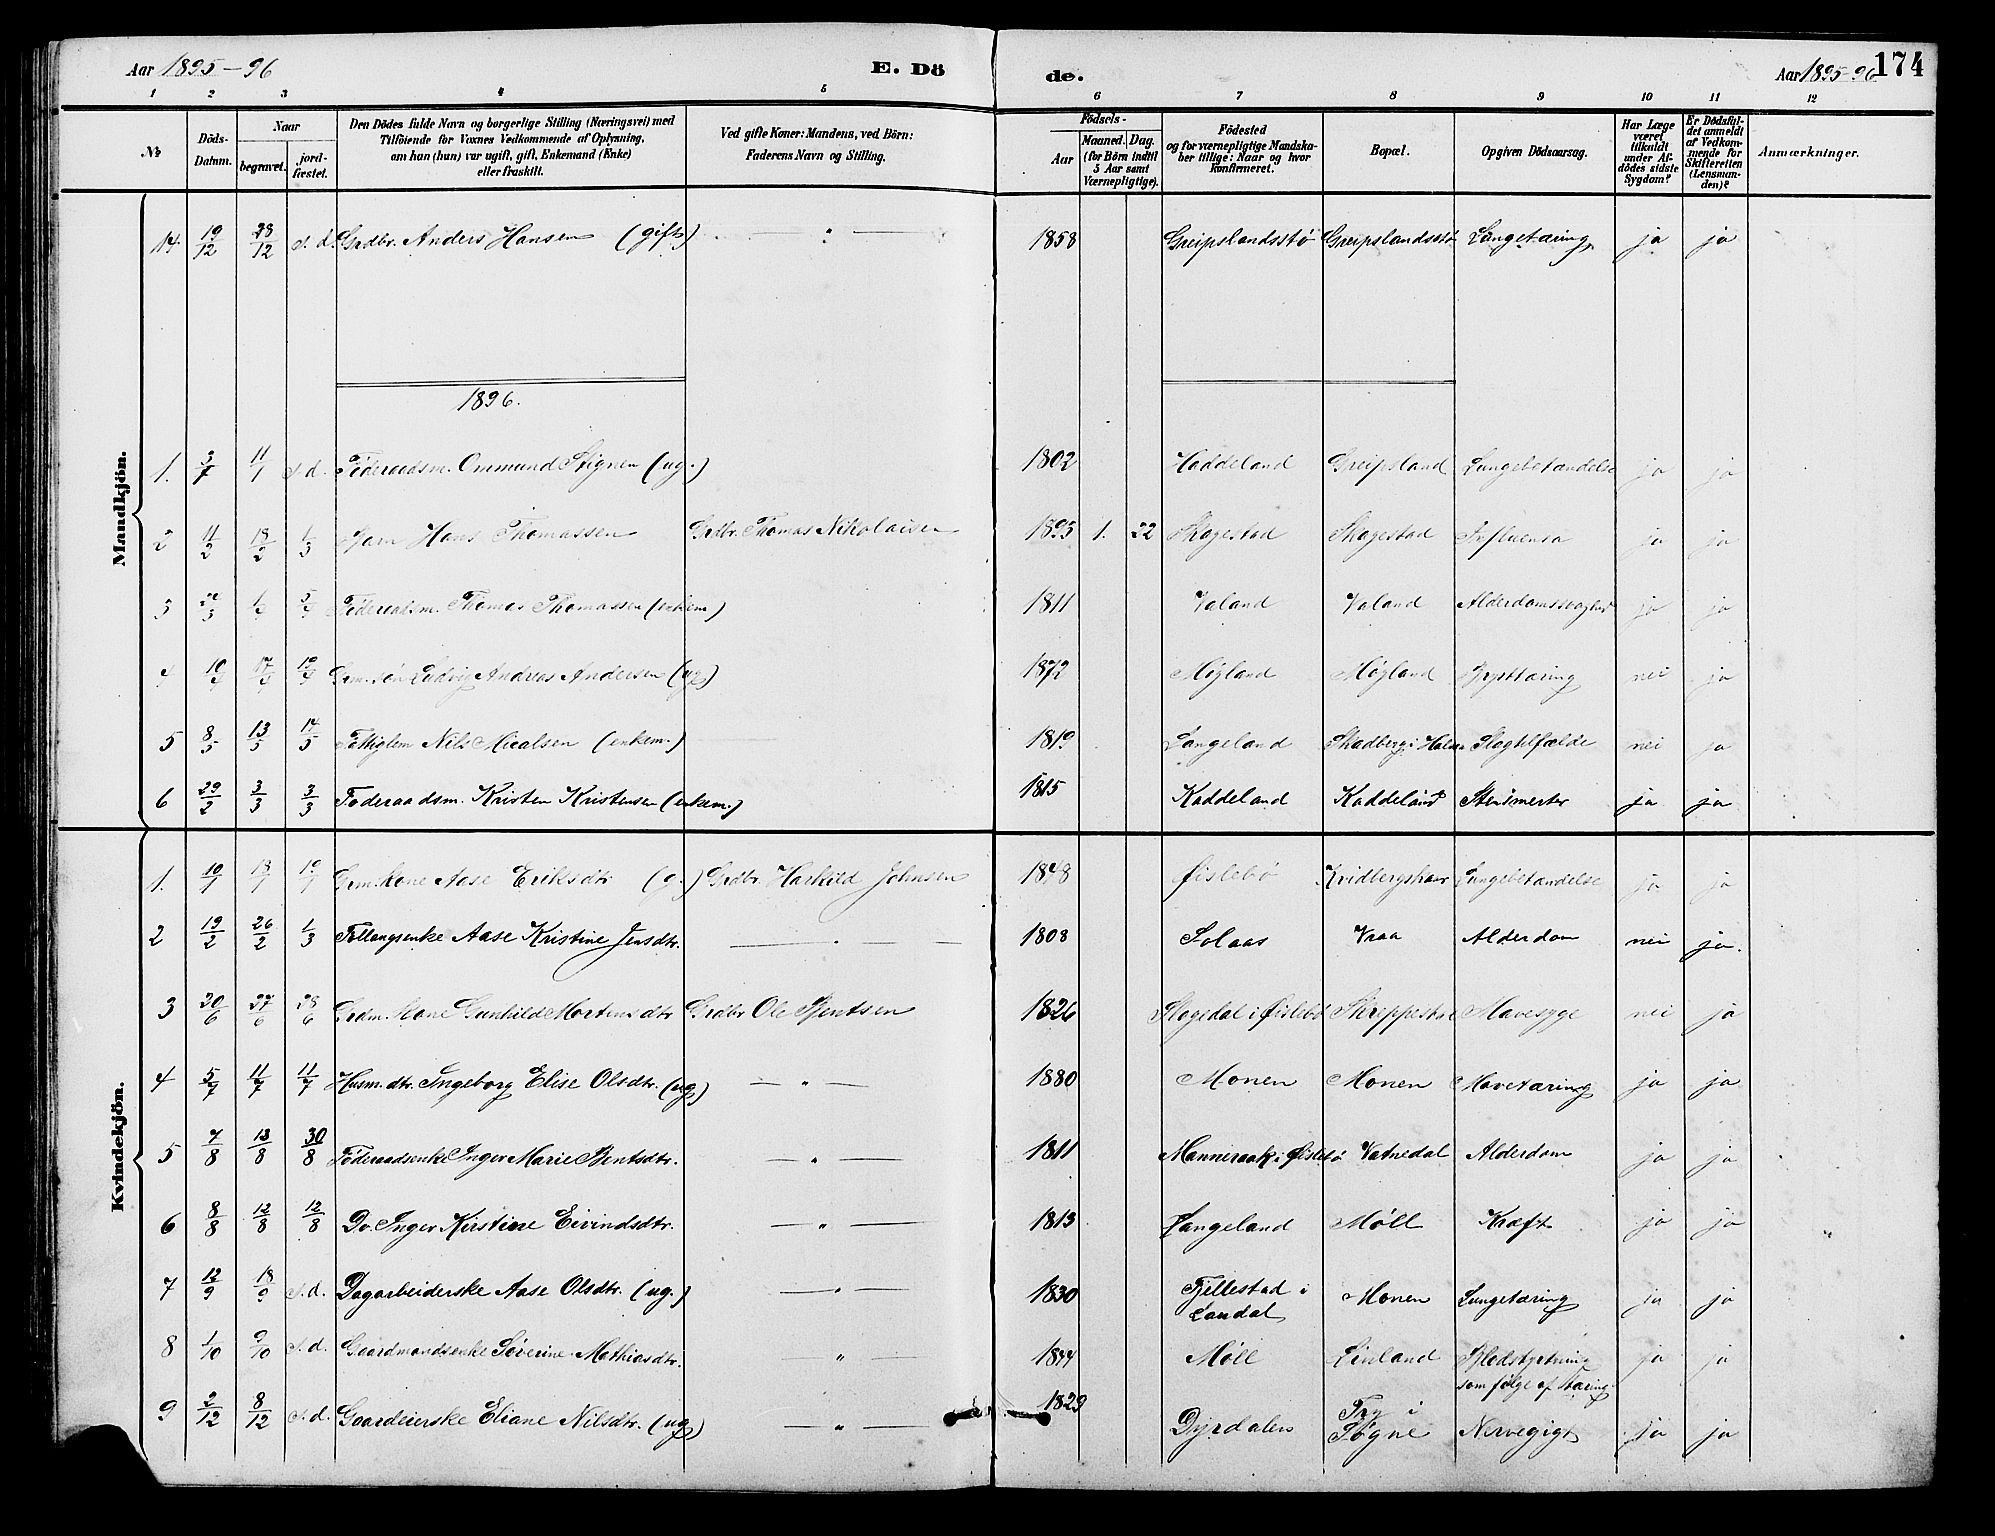 Aar 1895-96 E. Dö de. Aar 1895-96 174
1 2 3 4 5 6 7 8 9 10 11 12
№ Döds-Datum. Naar begravet. jordfæstet. Den Dödes fulde Navn og borgerlige Stilling (Næringsvei) med Tilföiende for Voxnes Vedkommende af Oplysning, om han (hun) var ugift, gift, Enkemand (Enke) eller fraskilt. Ved gifte Koner: Mandens, ved Börn: Faderens Navn og Stilling. Födsels- Aar Maaned. Dag. (for Börn indtil 5 Aar samt Værnepligtige). Födested og for værnepligtige Mandskaber tillige: Naar og hvor konfirmeret. Bopæl. Opgiven Dödsaarsag. Har Læge været tilkaldt under Afdödes sidste Sygdom? Er Dödsfaldet anmeldt af Vedkommende for Skifteretten (Lensmanden)? Anmærkninger.
Mandkjön.
14. 19/12 28/12 s.d. Grdbr. Anders Hansen (gift) — " — 1858 Greipslandsstø Greipslandsstø Lungetæring ja ja
1896.
1. 3/7 11/1 s.d. Föderaadsm. Ommund Stignen (ug.) 1802 Haddeland Greipsland Lungebetændelse ja ja
2 11/2 18/2 1/3 Barn Hans Thomassen Grdbr. Thomas Nikolaisen 1895 1. 22 Skagestad Skagestad Influensa ja ja
3 Föderaadsm. Thomas Thomassen (enkem) 1811 Valand Valand Alderdomssvaghed ja ja
4 Grm. søn Ludvig Andreas Andersen (ug) 1872 Møgland Møgland Brysttæring nei ja
5 8/5 13/5 14/5 Fattiglem Nils Micalsen (enkem.) 1819 Langeland Skadberg i Slagtilfælde nei ja
6 29/2 3/3 3/3 Föderaadsm. Kristen Kristensen (enkem.) 1815 Kaddeland Kaddeland Stensmerter ja ja
Kvindekjön.
1. 10/1 18/1 19/1 Grm. kone Aase Eriksdtr (g.) Grdbr. Harkild Johnsen 1848 Øislebö Lungebetændelse ja ja
2 19/2 26/2 1/3 Aase Kristine Jensdtr. — " — 1808 Solaas Vraa Alderdom nei ja.
3 20/6 27/6 28/6 Grdm. Kone Gunhild Mortensdtr Grdbr Ole Bentsen 1826 Slagedal i Øislebö Mavesyge nei ja
4 5/7 11/7 11/7 Husm. dtr. Ingeborg Elise Olsdtr. (ug) — " — 1880 Monen Monen Mavetæring ja ja
5 7/8 13/8 30/8 Föderaadsenke Inger Marie Bentsdtr. — " — 1811 Manneraak i Øislebö Vatnedal Alderdom ja ja
6 8/8 12/8 12/8 Do. Inger Kirstine Eivindsdtr. — " — 1813 Langeland Møll Kræft ja ja
7 12/9 18/9 s.d. Dagarbeiderske Aase Olsdtr. (ug.) — " — 1830 Fjellestad i Laudal Monen Lungetæring ja ja
8 1/10 9/10 s.d. Gaardmandsenke Søverine Mathiasdtr. " — 1844 Møll Linland Blodstyrtning som følge af tæring ja ja
9 2/12 8/12 s.d. Gaardeierske Eliane Nilsdtr. (ug) — " — 1829 Dyrdalen Try i Søgne Nervegigt ja ja